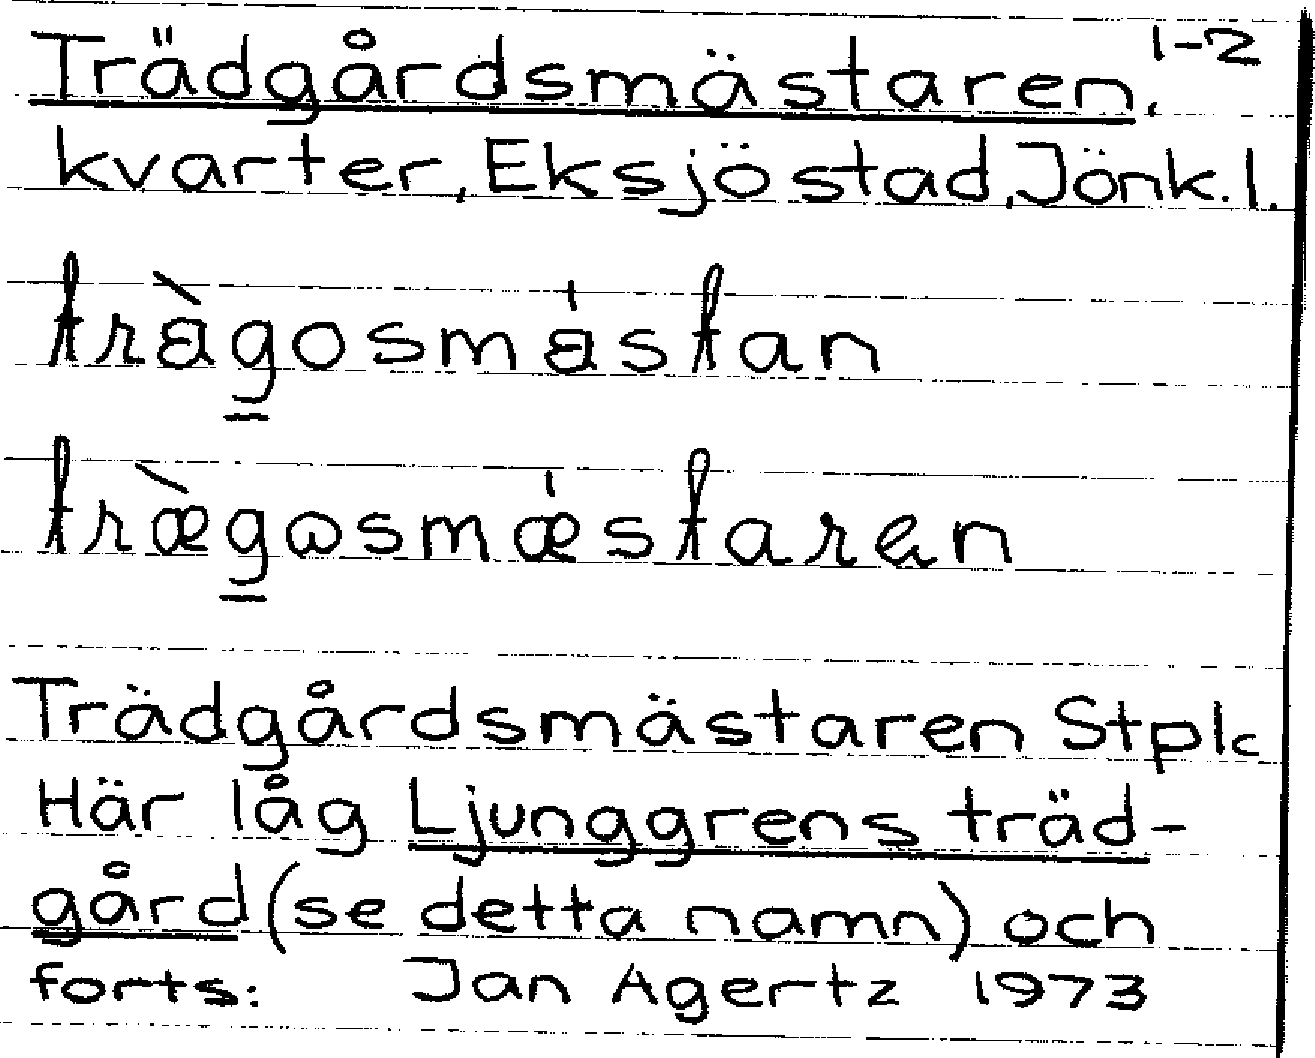 Trädgårdsmästaren, 1-2
kvarter, Eksjö stad, Jönk. l.
tràgosmástan
træ̀gosmǽstaren
Trädgårdsmästaren Stplc
Här låg Ljunggrens träd-
gård (se detta namn) och
forts: Jan Agertz 1973